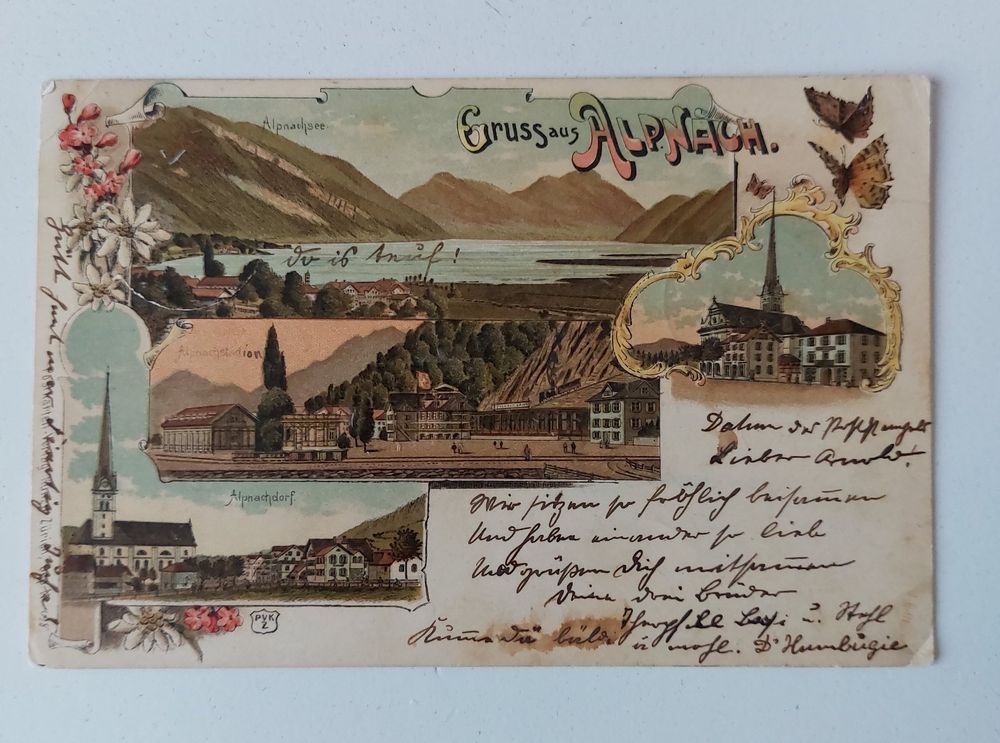 Gruss aus ALPNACH.
Alpnachsee
do is
Alpnachstadion
Alpnachdorf.
PVK
Z
Datum der
Lieber Arnold!
Wir sitzen so fröhlich beisammen
Und haben einander so lieb
Und grüßen Dich mitsammen
Deine drei Brüder
u.
Kumm bald u. D'Humbugie